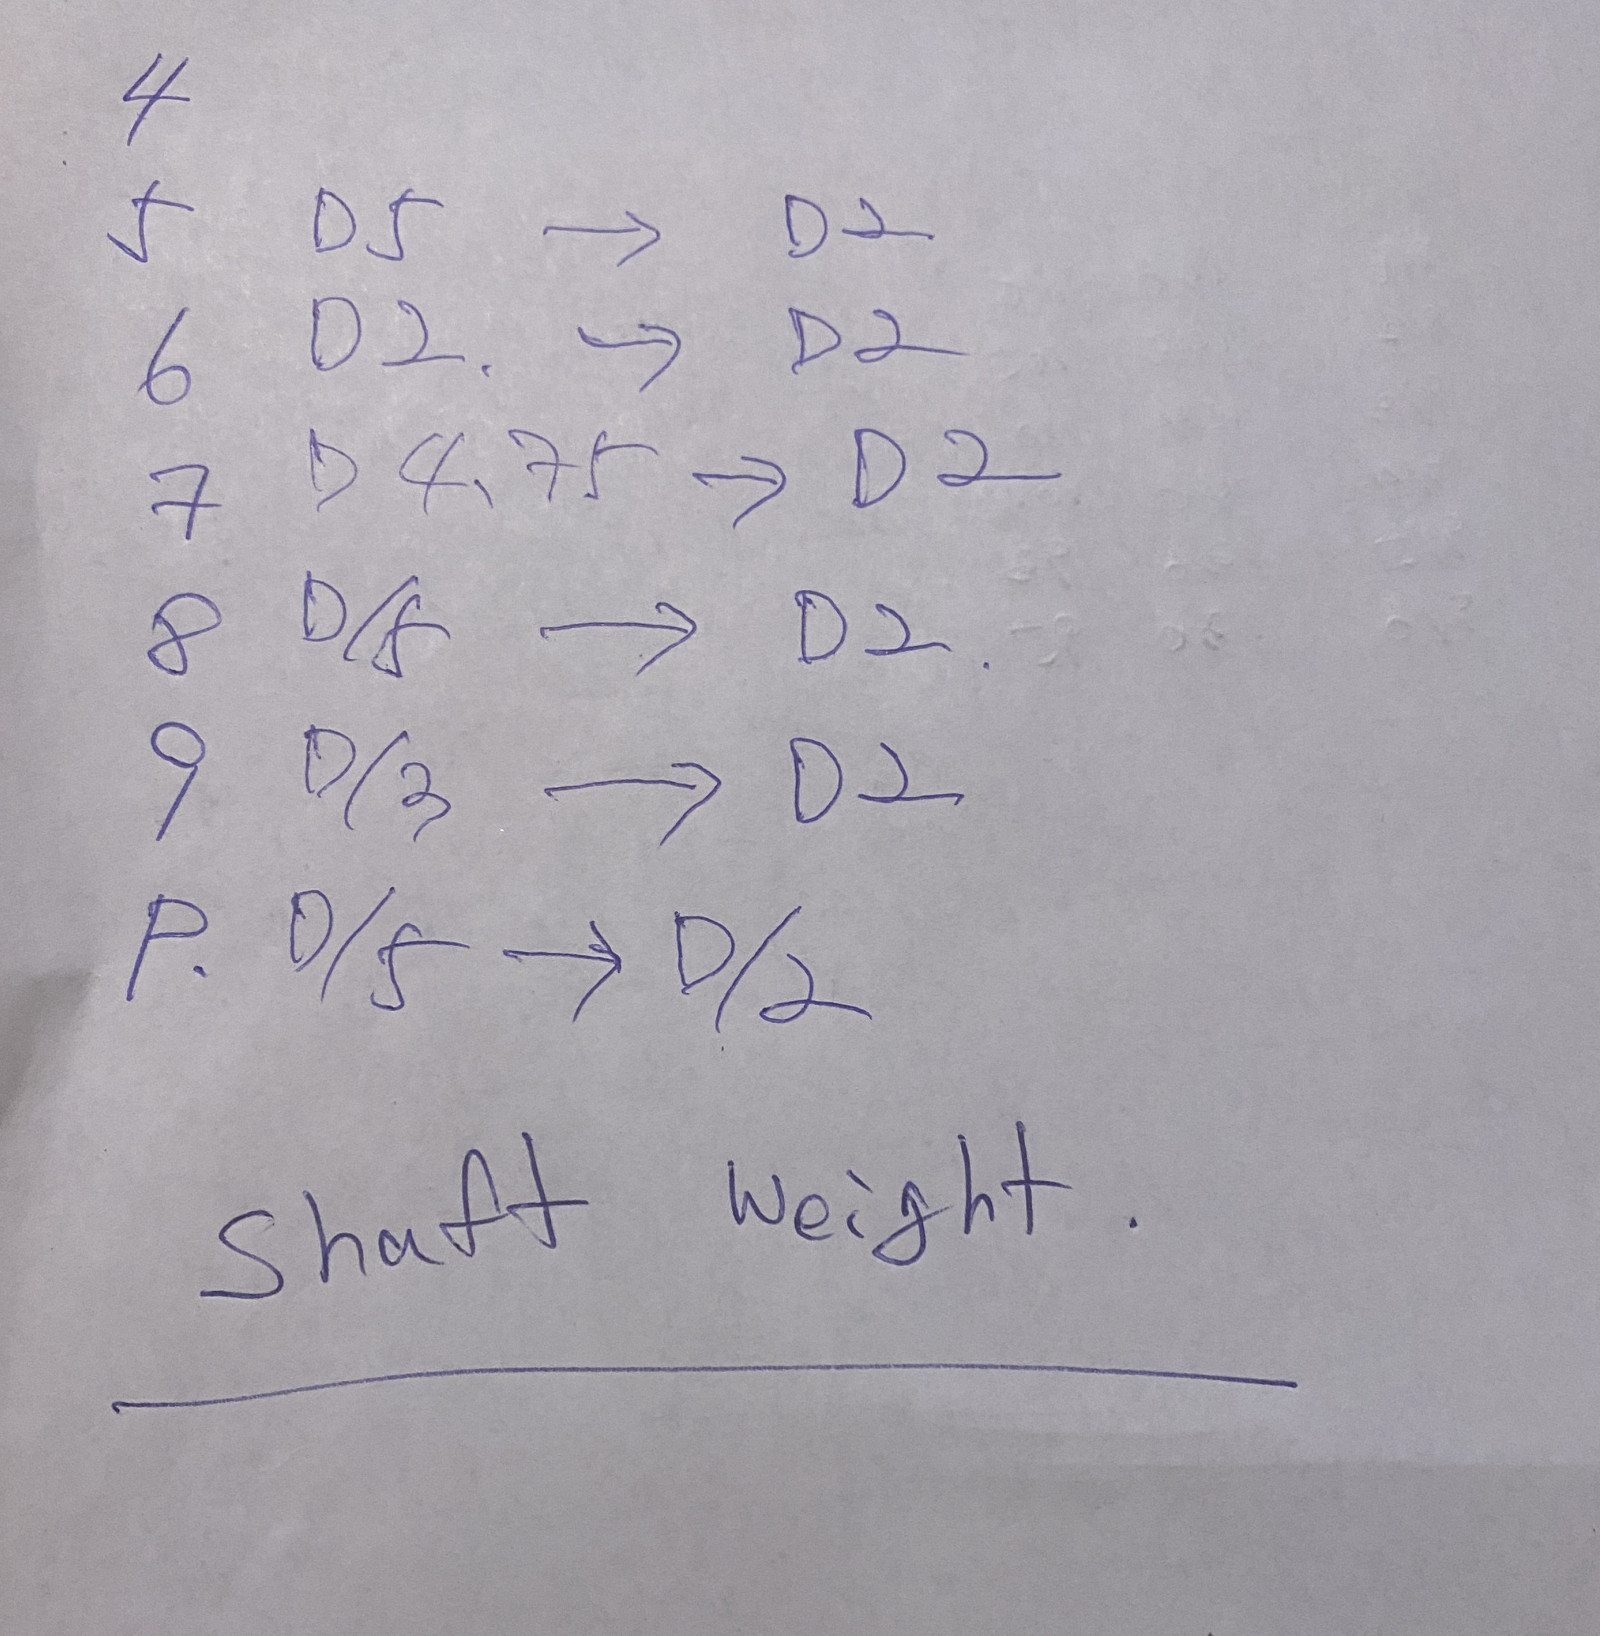 4
5 D5 → D2
6 D2. → D2
7 D4.75 → D2
8 D/5 → D2.
9 D/3 → D2
P. D/5 → D/2
Shaft weight.